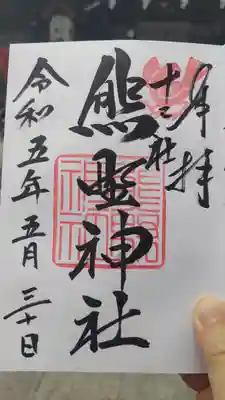 奉拝
十二社
熊野神社
令和五年五月三十日